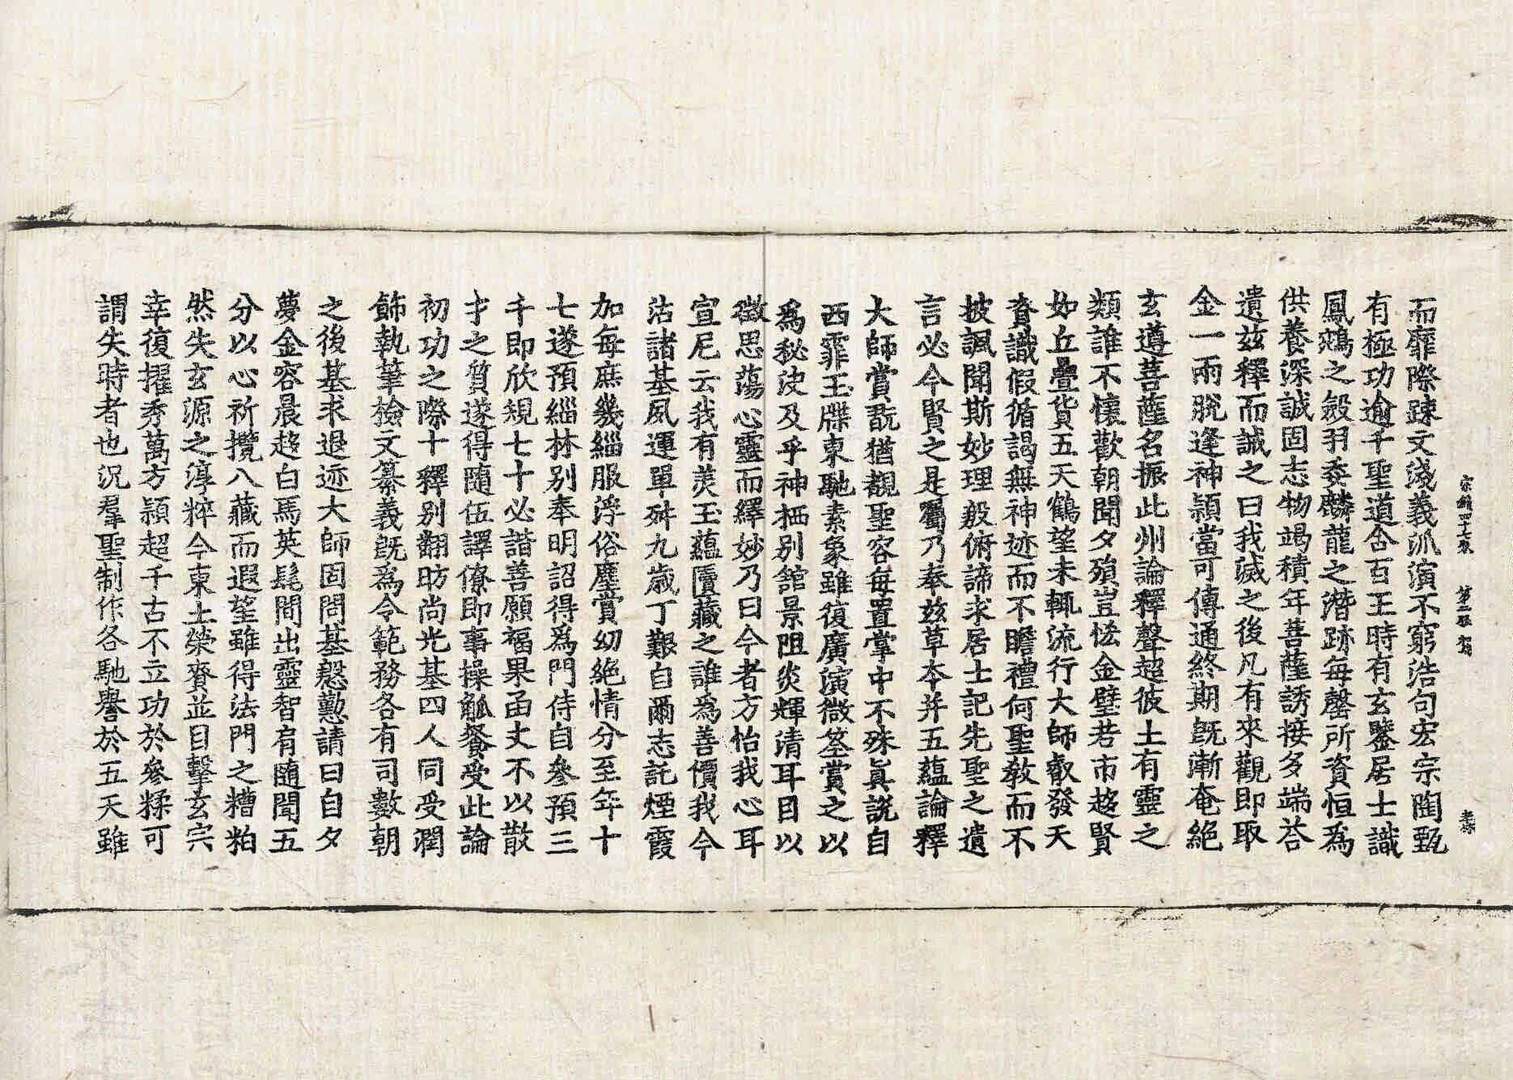 宗鏡四十七卷　第二張　宿
而靡際疎文淺義派演不窮浩句宏宗陶甄
有極功逾千聖道合百王時有玄鑒居士識
鳳鵷之斂羽委麟龍之潛跡每罄所資恒爲
供養深誠固志物竭積年菩薩誘接多端荅
遺茲釋而誡之曰我滅之後凡有來觀即取
金一兩脫逢神穎當可傳通終期旣漸奄絕
玄導菩薩名振此州論釋聲超彼土有靈之
類誰不懷歡朝聞夕殞豈恡金璧若市趍賢
如丘疊貨五天鶴望未輒流行大師叡發天
資識假循謁無神迹而不瞻禮何聖敎而不
披諷聞斯妙理殷俯諦求居士記先聖之遺
言必今賢之是屬乃奉茲草本幷五蘊論釋
大師賞翫猶覩聖容每置掌中不殊眞說自
西霏玉牒東馳素象雖復廣演微筌賞之以
爲秘決及乎神栖别舘景阻炎輝清耳目以
徵思蕩心靈而繹妙乃曰今者方怡我心耳
宣尼云我有美玉蘊匵藏之誰爲善價我今
沽諸基夙運單舛九歲丁艱自爾志託煙霞
加每庶幾緇服浮俗塵賞幼絕情分至年十
七遂預緇林别奉明詔得爲門侍自參預三
千即欣規七十必諧善願福果函丈不以散
才之質遂得隨伍譯僚即事操觚飡受此論
初功之際十釋别翻昉尚光基四人同受潤
飾執筆檢文纂義旣爲令範務各有司數朝
之後基求退迹大師固問基懇懃請曰自夕
夢金容晨趍白馬英髦間出靈智肩隨聞五
分以心祈攬八藏而遐望雖得法門之糟粕
然失玄源之淳粹今東土榮賚並目擊玄宗
幸復擢秀萬方穎超千古不立功於參糅可
謂失時者也况羣聖制作各馳譽於五天雖